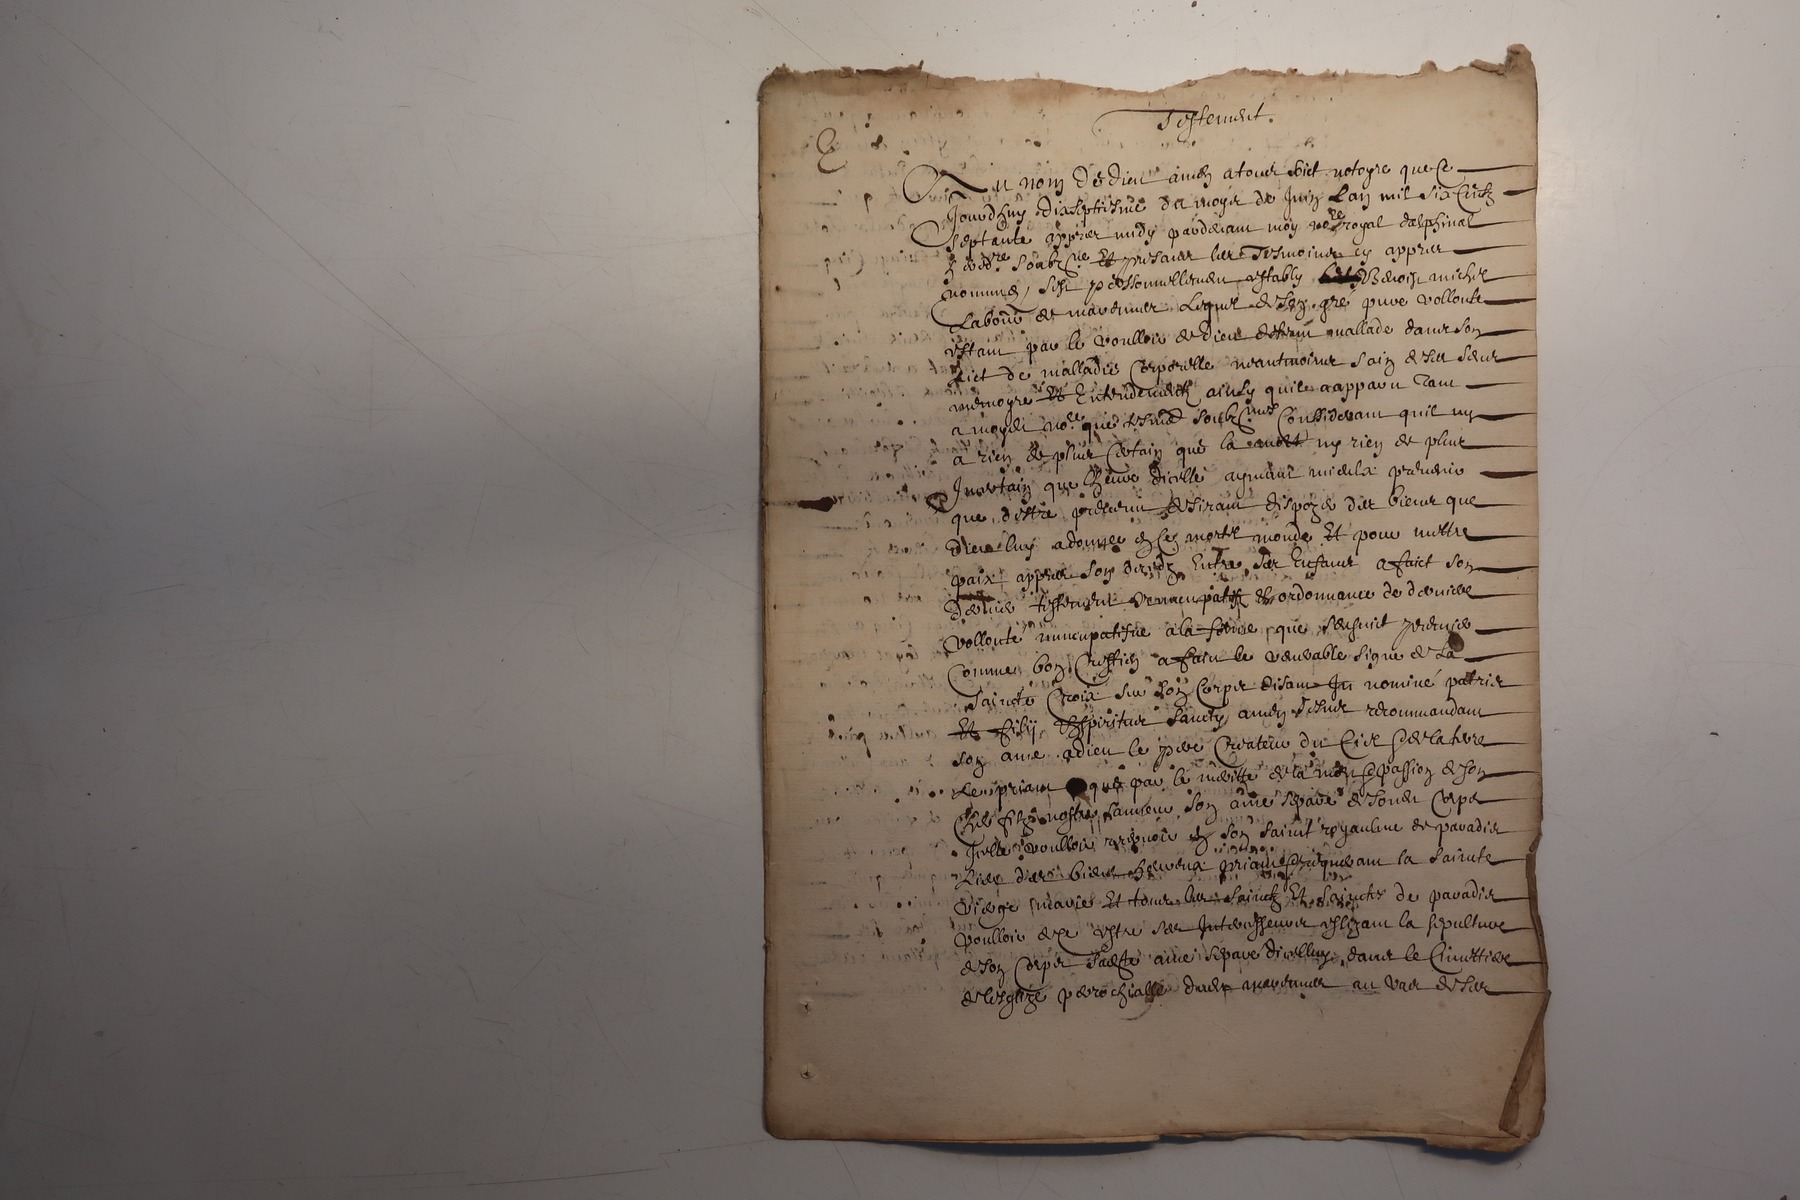 Testement.
Au nom de dieu amen a tous soict notoyre que ce
Jourdhuy dixseptiesme du moys de Juin Lan mil six centz
septante appres midy pardevant moy no.re royal dalphinal
hered.re soubz.ne Et presans les Tesmoins cy appres
nommes, sest personnellement estably Benoist michel
Labour de mavennes Lequel de son gre pure vollonte
estant par le voulloir de dieu detenu mallade dans son
Lict de malladie Corporelle neantmoins sain de ses sens
memoyre Et Entendement, ainsy quil a apparu Tant
a moydit no.re que tesmoins soubz.nes Considerant quil ny
a rien de plus Certain que la mort ny rien de plus
Incertain que lheure dicelle aymant mieulx prevenir
que destre prevenu desirant dispozer des biens que
dieu luy a donnes en ce mortel monde Et pour mettre
paix appres son deces Entre ses Enfans a faict son
dernier testement nuncupatif Et ordonnance de derniere
vollonte nuncupatifve a la forme que sensuit premier
Comme bon Crestien a faict le venerable signe de La
Saincte Croix sur son Corps disant In nomine patris
Et filij Et spiritus sancty amen Jesus recommandant
son ame a dieu le pere Createur du Ciel Et de la terre
Le priant que par le meritte de la mort Et passion de son
Cher filz nostre sauveur son ame separe de sondit Corps
Icelle voulloir recepvoir en son sainct royaulme de paradis
Lieu des bien heureux priant Et requerant la saincte
vierge marie Et tous les sainctz Et sainctes de paradis
voulloir de ce estre ses Intercesseurs eslizant la sepulture
de son Corps sadite ame separe dicelluy dans le Cimettiere
de lesglize parrochialle dudit mavennes au vas de ses